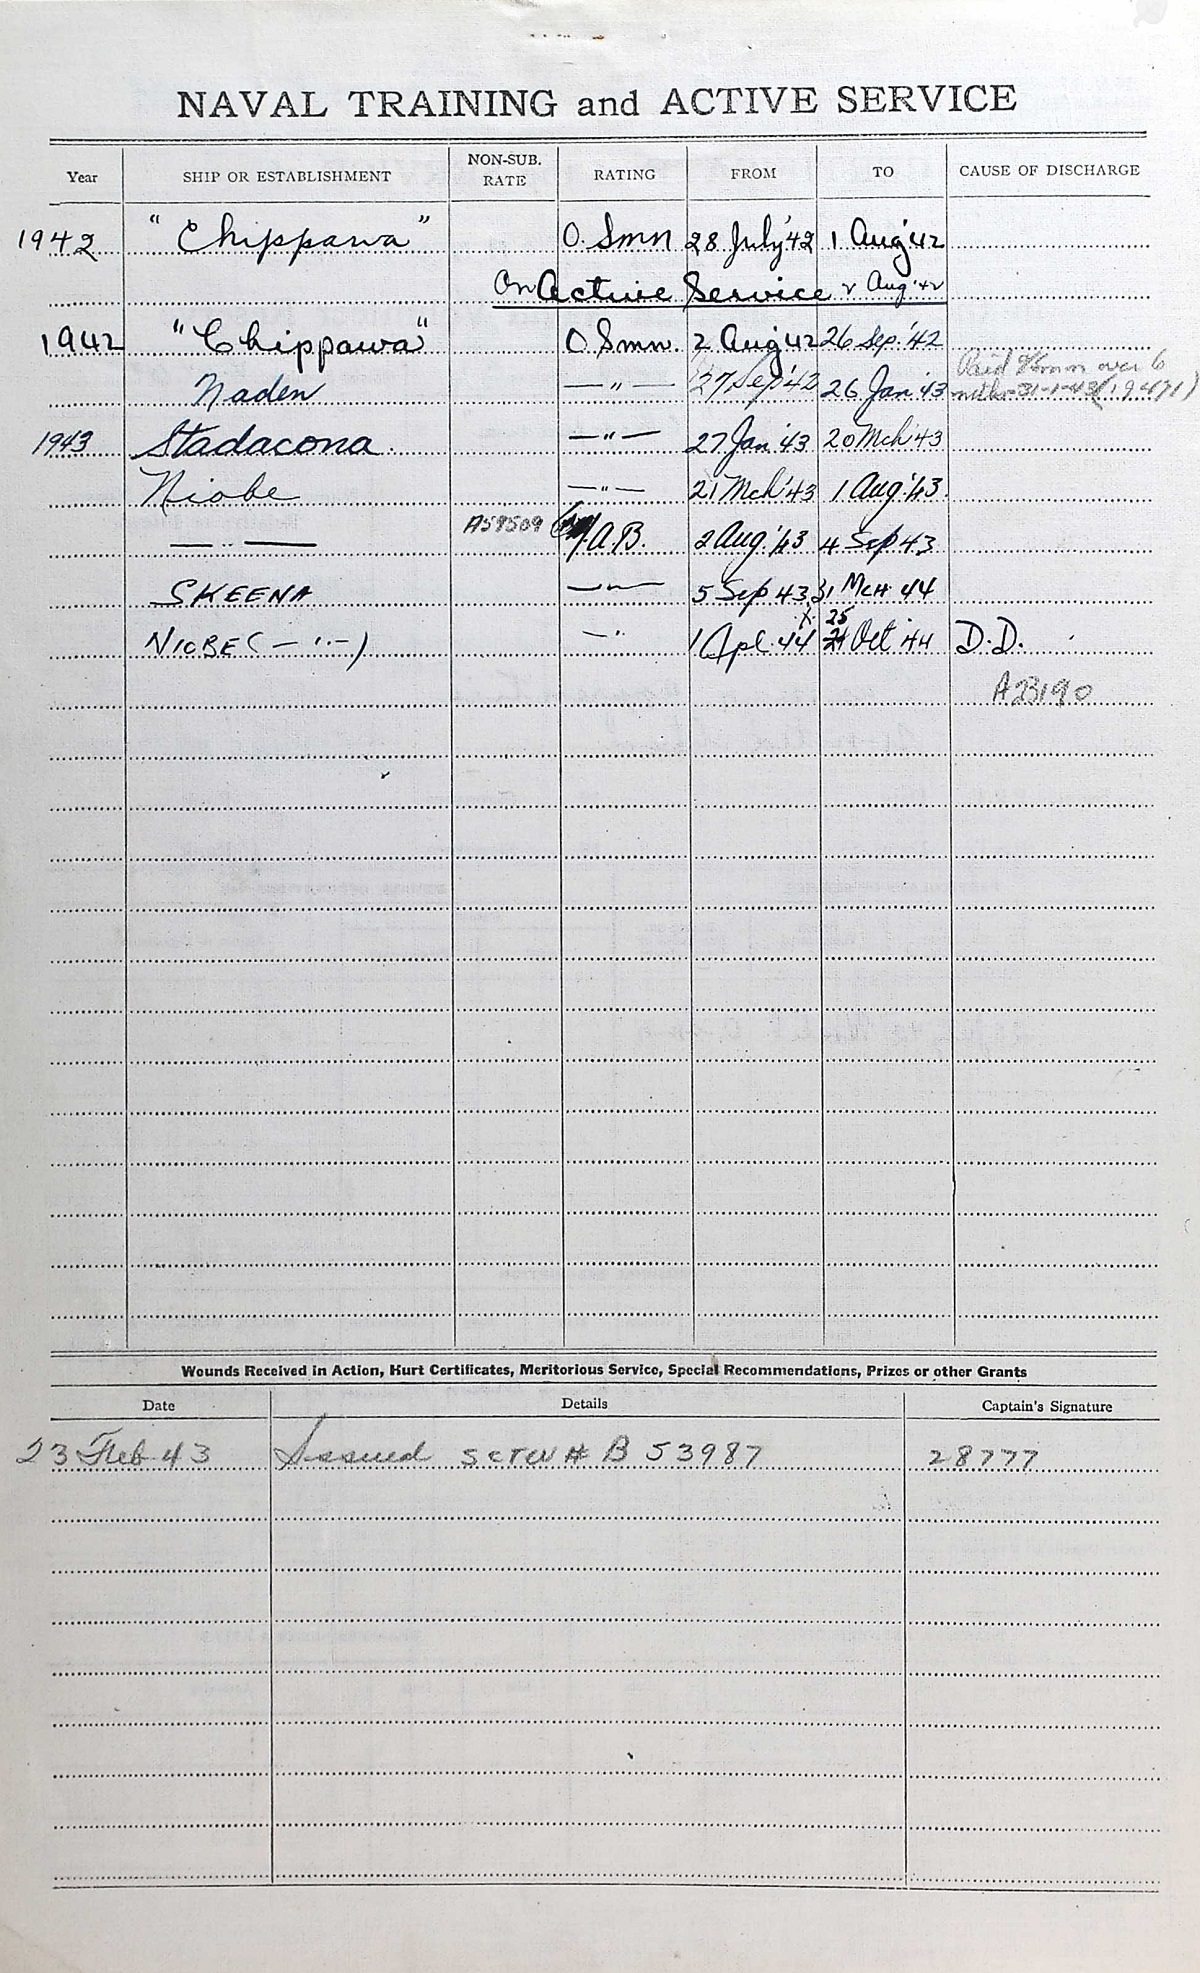 NAVAL TRAINING and ACTIVE SERVICE
Year SHIP OR ESTABLISHMENT NON-SUB. RATE RATING FROM TO CAUSE OF DISCHARGE
1942 "Chippawa" O. Smn 28 July '42 1 Aug '42
On Active Service 2 Aug '42
1942 "Chippawa" O. Smn. 2 Aug '42 26 Sep. '42
Paid over 6
Naden — " — 27 Sep '42 26 Jan '43 31-1-43 (19471)
1943 Stadacona — " — 27 Jan '43 20 Mch '43
Niobe — " — 21 Mch '43 1 Aug '43
— " — A59509 A.B. 2 Aug. '43 4 Sep 43
SKEENA — " — 5 Sep 43 31 Mch 44
25
NIOBE (— " —) — " 1 Apl. 44 Oct 44 D.D.
A23190
Wounds Received in Action, Hurt Certificates, Meritorious Service, Special Recommendations, Prizes or other Grants
Date Details Captain's Signature
23 Feb 43 Issued B 53987 28777